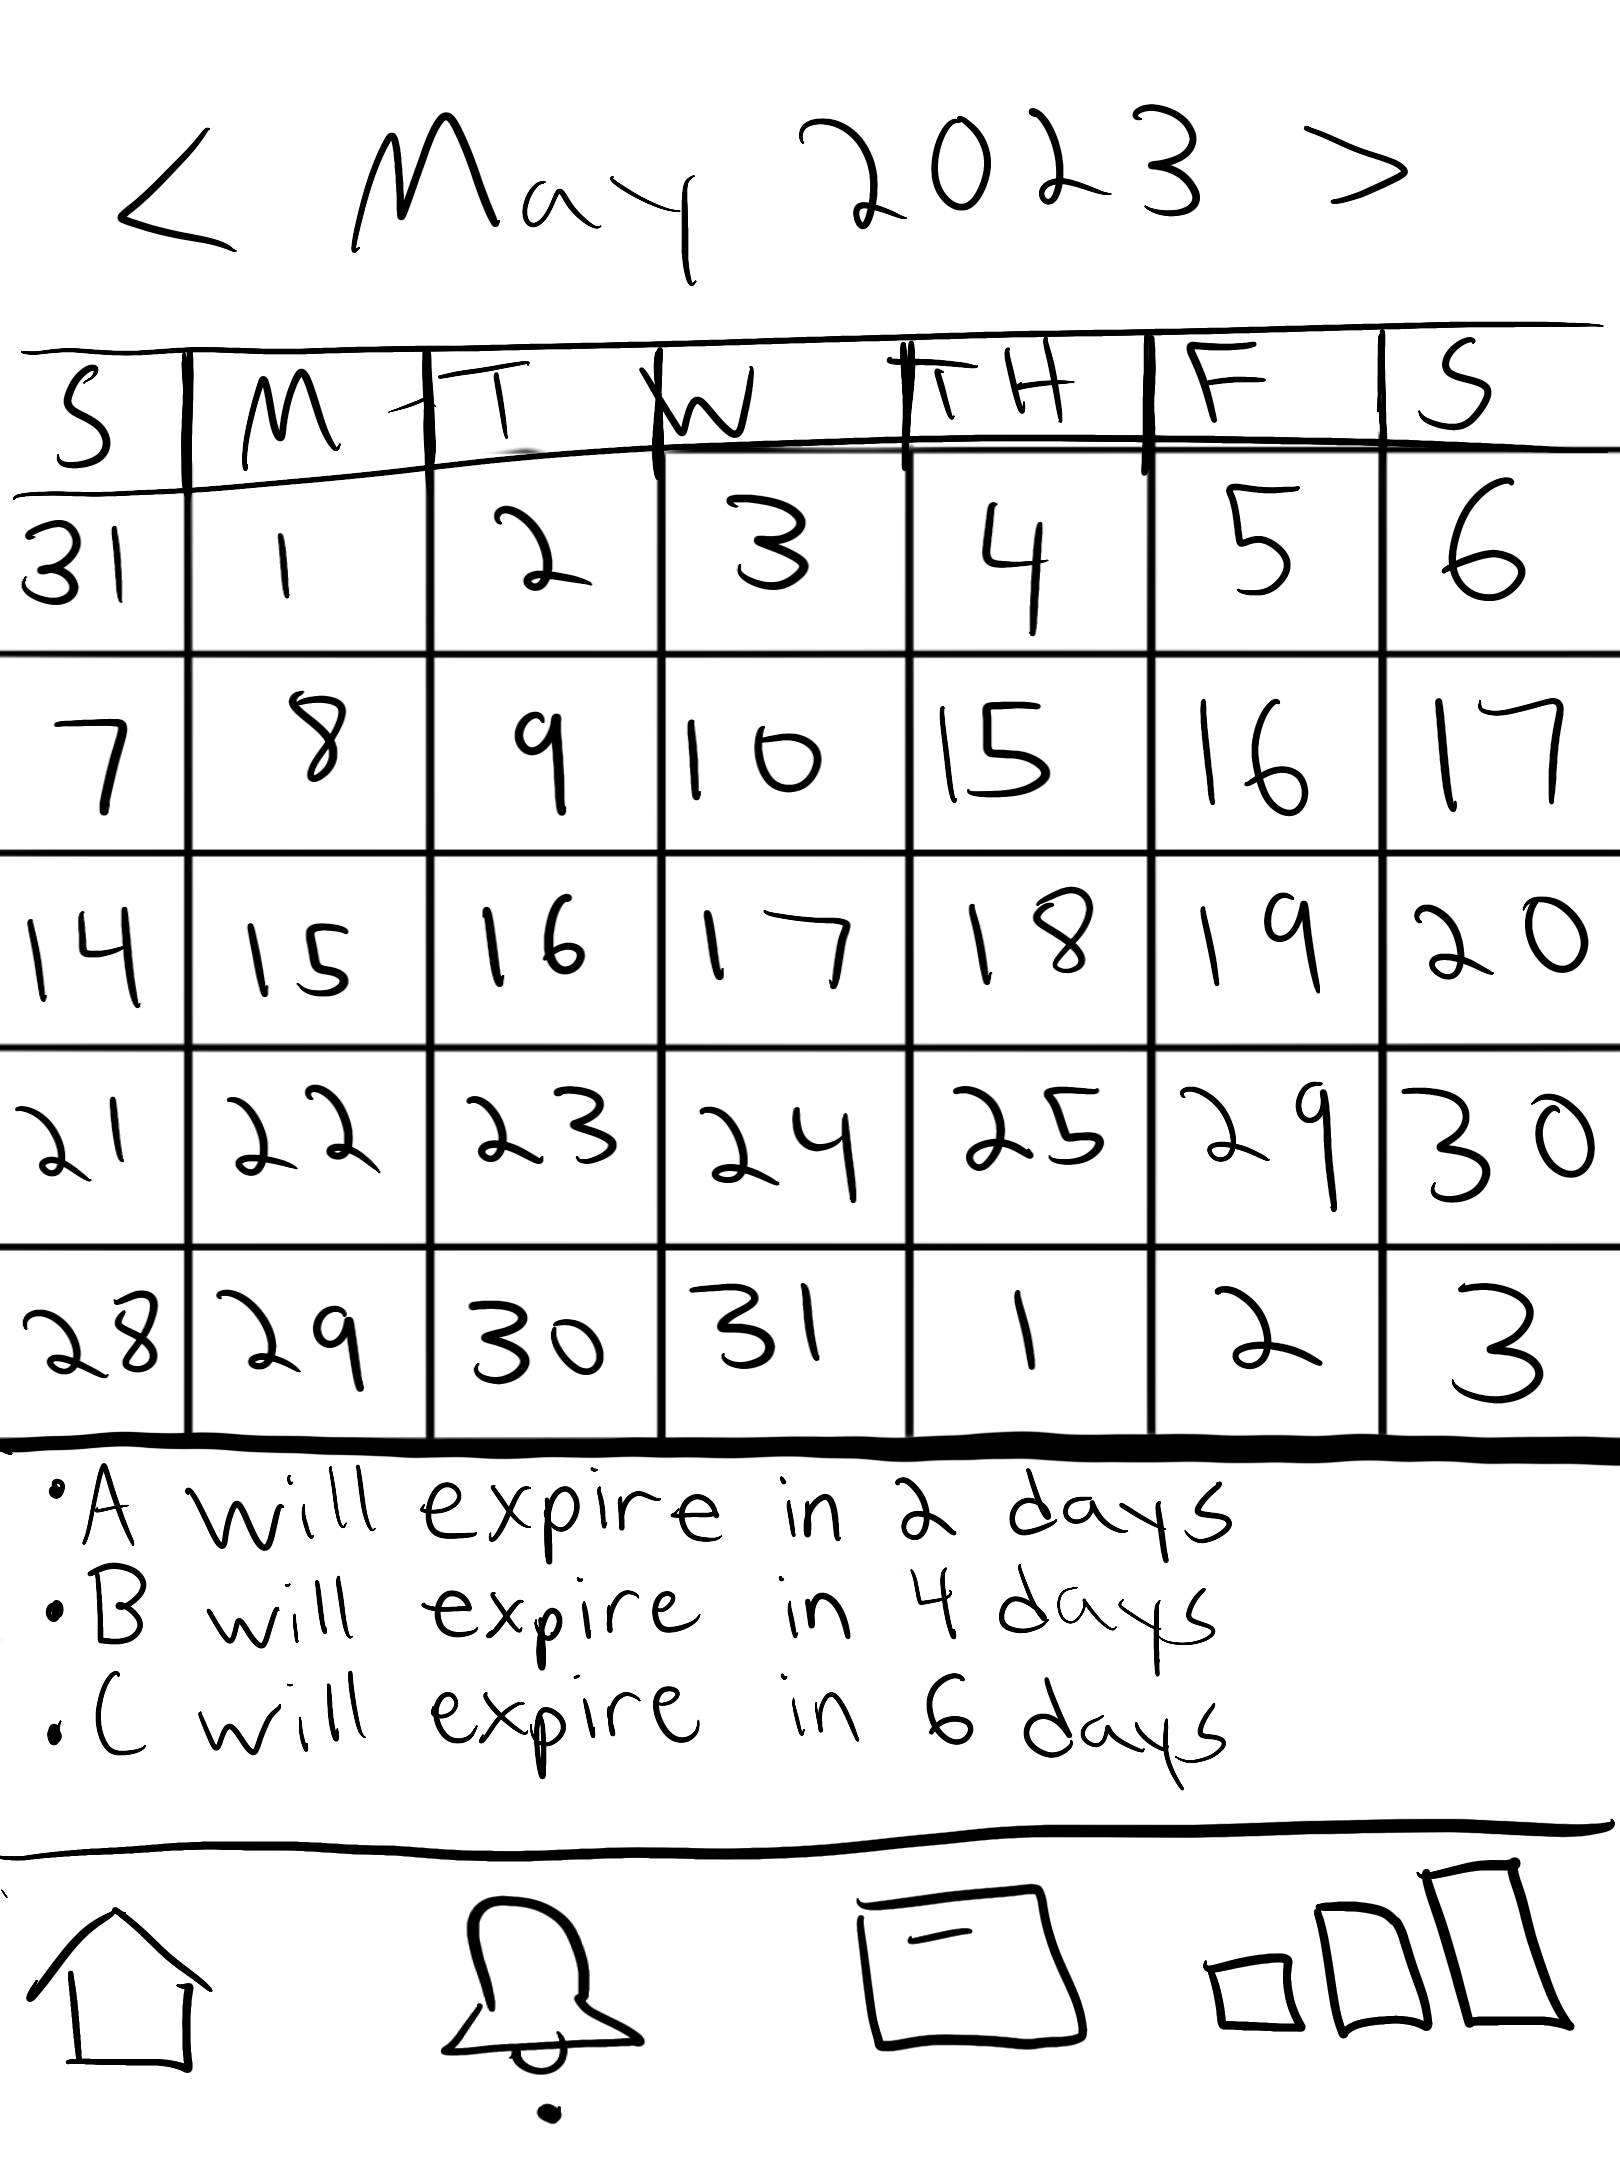 < May 2023 >
S M T W TH F S
31 1 2 3 4 5 6
7 8 9 10 15 16 17
14 15 16 17 18 19 20
21 22 23 24 25 29 30
28 29 30 31 1 2 3
• A will expire in 2 days
• B will expire in 4 days
• C will expire in 6 days